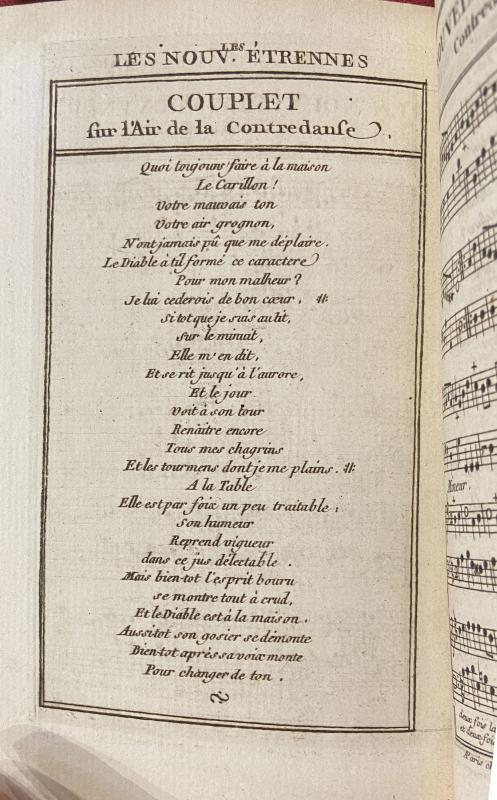 LES NOUV. LES ÉTRENNES
COUPLET
sur l'Air de la Contredanse.
Quoi toujours faire à la maison
Le Carillon !
Votre mauvais ton
Votre air grognon,
N'ont jamais pû que me déplaire.
Le Diable à til formé ce caractere
Pour mon malheur ?
Je lui cederois de bon cœur. :||:
Si tot que je suis au lit,
sur le minuit,
Elle m'en dit,
Et se rit jusqu'à l'aurore,
Et le jour
voit à son tour
Renaitre encore
Tous mes chagrins
Et les tourmens dont je me plains. :||:
A la Table
Elle est par foix un peu traitable ;
Son humeur
Reprend vigueur
dans ce jus délectable .
Mais bien-tot l'esprit bouru
se montre tout à crud,
Et le Diable est à la maison.
Aussitot son gosier se démonte
Bien-tot après sa voix monte
Pour changer de ton .
Contred
Mineur.
deux fois la
et deux fois
Paris ch